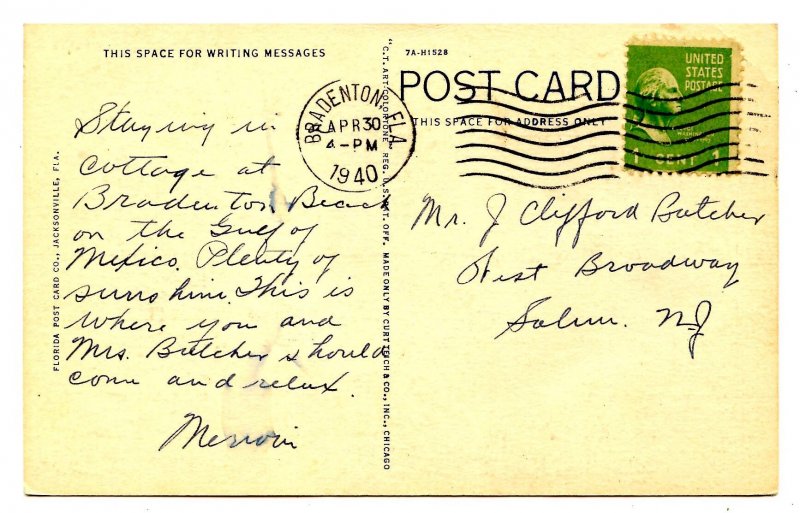 THIS SPACE FOR WRITING MESSAGES
Staying in
cottage at
Bradenton Beach
on the Gulf of
Mexico. Plenty of
sunshine. This is
where you and
Mrs. Butcher should
come and relax.
FLORIDA POST CARD CO., JACKSONVILLE, FLA.
"C.T. ART-COLORTONE" REG. U.S. PAT. OFF. MADE ONLY BY CURT TEICH & CO., INC., CHICAGO
7A-H1528
POST CARD
THIS SPACE FOR ADDRESS ONLY
BRADENTON, FLA.
APR 30
4-PM
1940
UNITED
STATES
POSTAGE
1 CENT 1
Mr. J Clifford Butcher
West Broadway
Salem. NJ